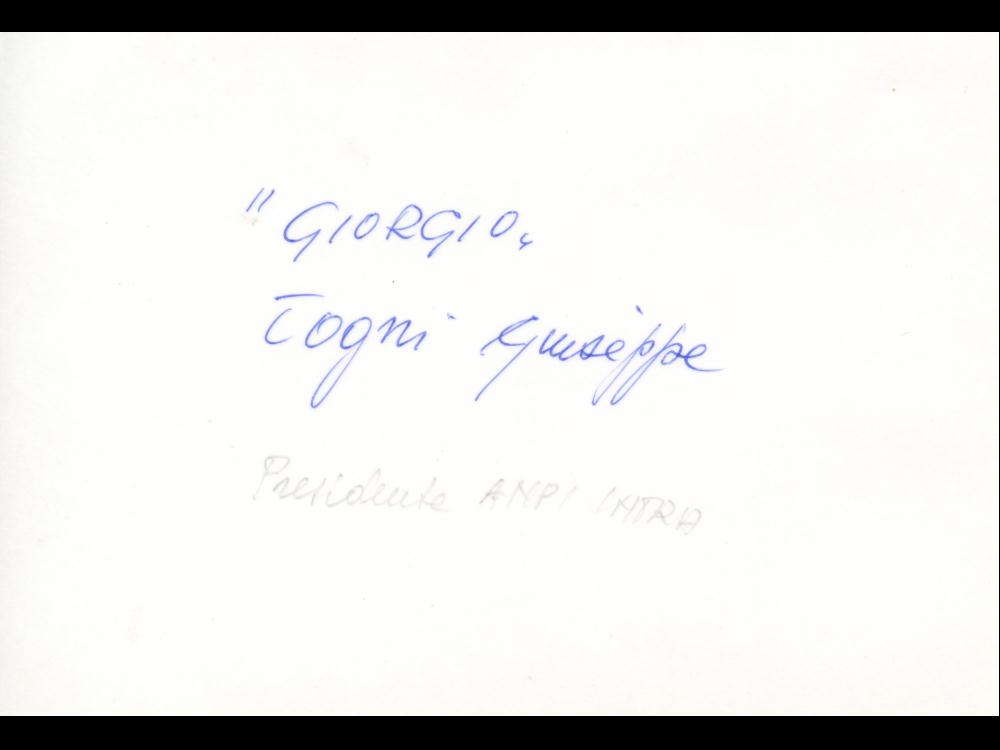 "GIORGIO„
Togni Giuseppe
Presidente ANPI INTRA